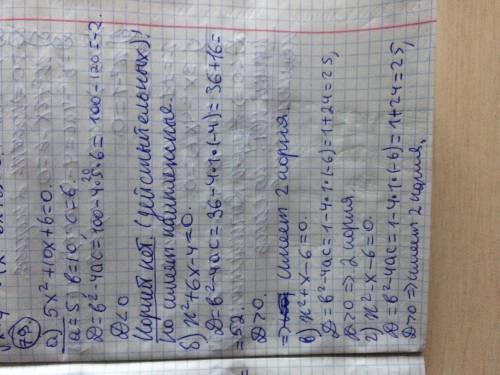 79.
а) 5x²+10x+6=0.
a=5; b=10; c=6.
D=b²-4ac=100-4·5·6=100-120=-2.
D<0
Корней нет (действительных)!
но имеет комплексные.
б) x²+6x-4=0.
D=b²-4ac=36-4·1·(-4)=36+16=
=52.
D>0.
=> имеет 2 корня.
в) x²+x-6=0.
D=b²-4ac=1-4·1·(-6)=1+24=25,
D>0=> 2 корня
г) x²-x-6=0.
D=b²-4ac=1-4·1·(-6)=1+24=25,
D>0=> имеет 2 корня,